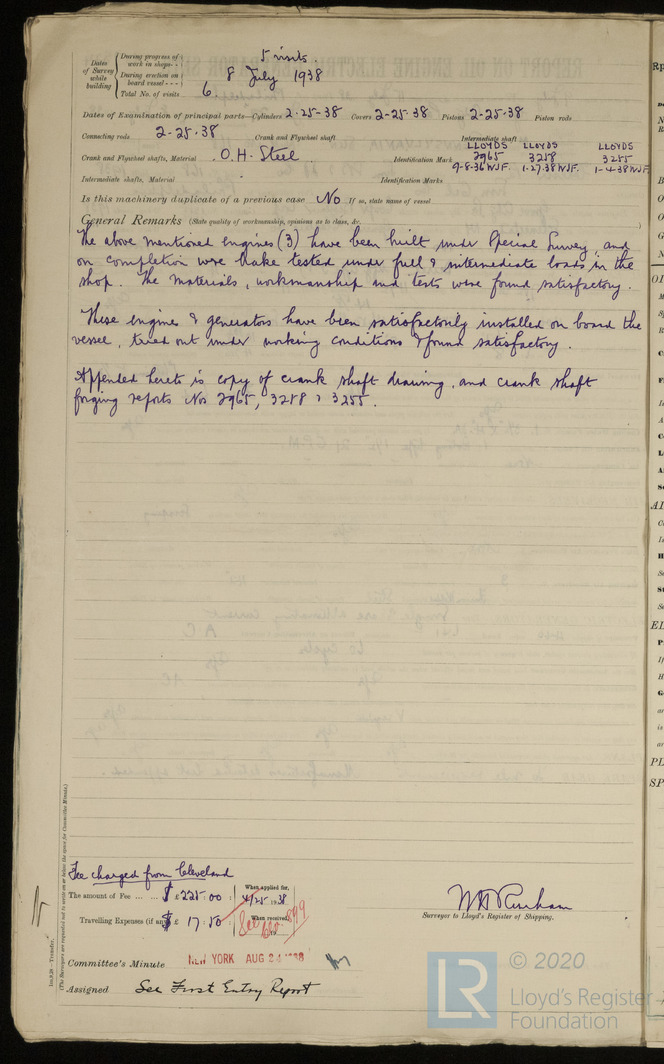 Dates of Survey while building
During progress of work in shops-- 5 visits
During erection on board vessel--- 8 July 1938
Total No. of visits 6.
Dates of Examination of principal parts—Cylinders 2-25-38 Covers 2-25-38 Pistons 2-25-38 Piston rods
Connecting rods 2-25-38 Crank and Flywheel shaft Intermediate shaft
LLOYDS LLOYDS LLOYDS
Crank and Flywheel shafts, Material O.H. Steel Identification Mark 2965 3258 3255
9-8-36 WJF. 1-27-38 WJF. 1-4-38 WJF.
Intermediate shafts, Material Identification Marks
Is this machinery duplicate of a previous case No If so, state name of vessel
General Remarks (State quality of workmanship, opinions as to class, &c.
The above mentioned engines (3) have been built under Special Survey, and
on completion were brake tested under full & intermediate loads in the
shop. The materials, workmanship and tests were found satisfactory.
These engines & generators have been satisfactorily installed on board the
vessel, tried out under working conditions & found satisfactory.
Appended hereto is copy of crank shaft drawing, and crank shaft
forging reports Nos 2965, 3258 & 3255.
Fee charged from Cleveland
The amount of Fee ... ... $ £ 225:00 : When applied for, 4/25 1938
Travelling Expenses (if any) $ £ 17:50 : When received,
See Clv. 899
Surveyor to Lloyd's Register of Shipping.
Committee's Minute NEW YORK AUG 24 1938
Assigned See First Entry Report
(The Surveyors are requested not to write on or below the space for Committee's Minute.)
© 2020
LR Lloyd's Register
Foundation